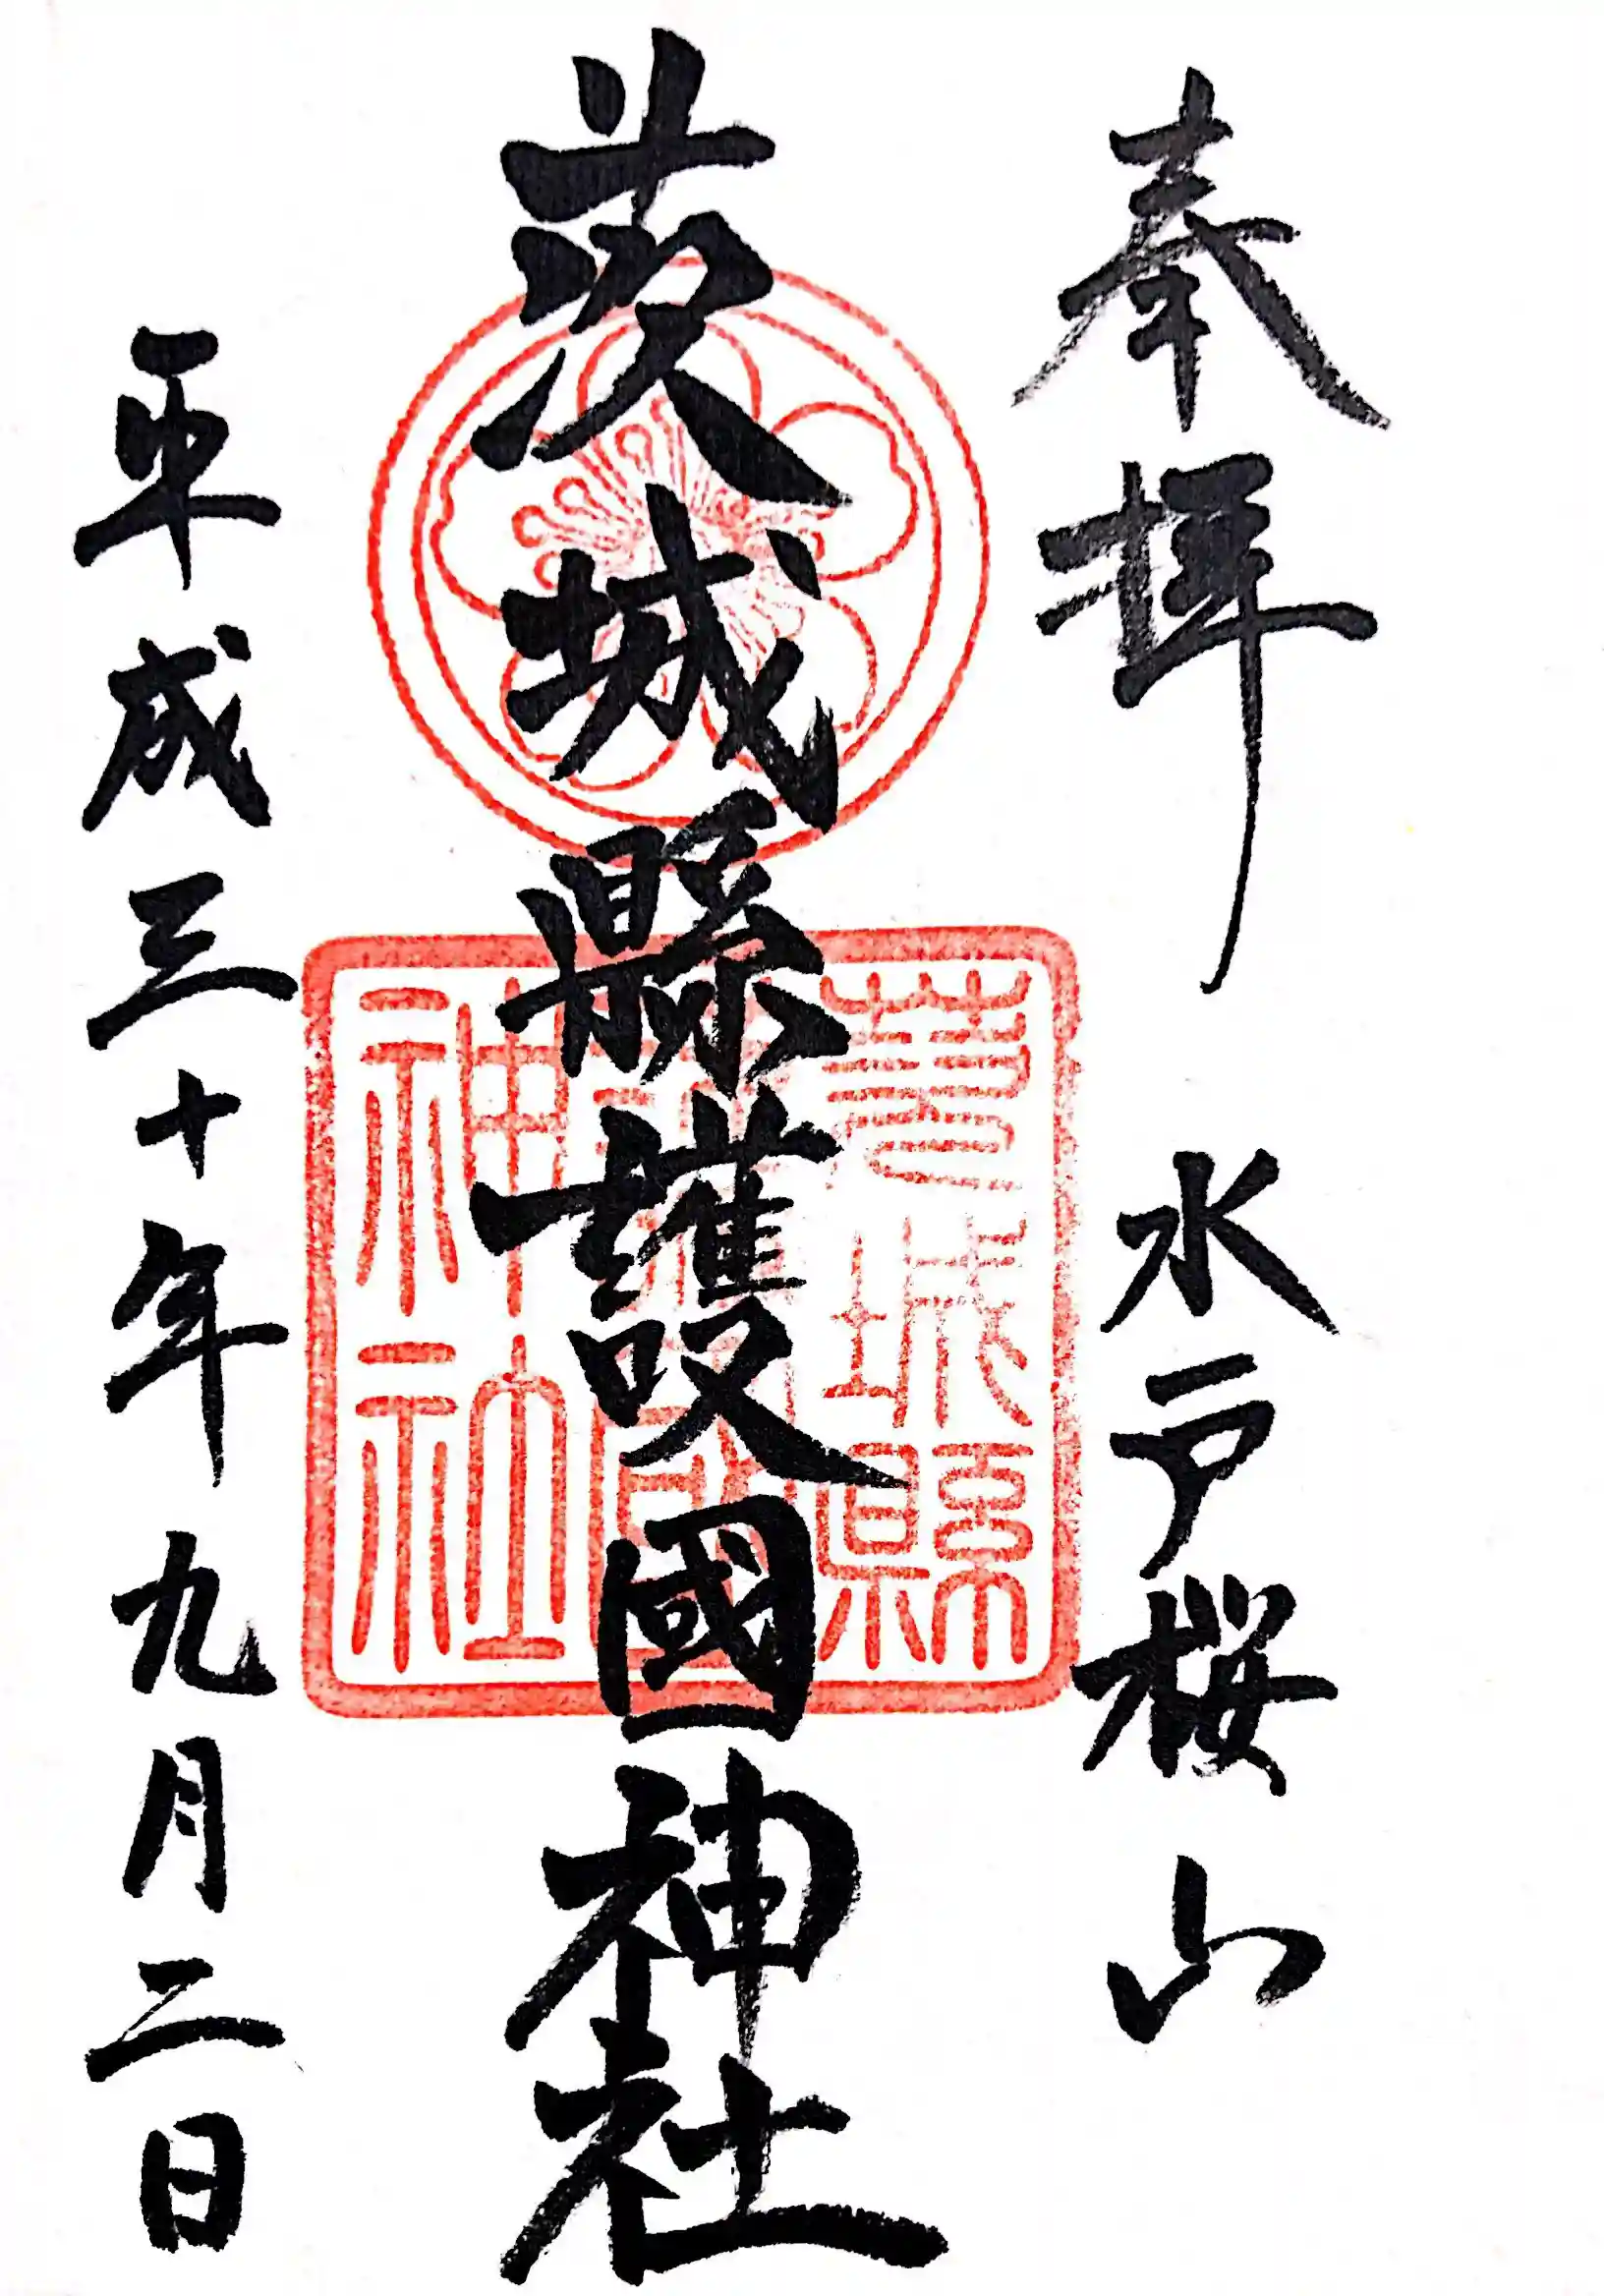 奉拝 水戸桜山
茨城縣護國神社
平成三十年九月二日
茨城縣
護國
神社